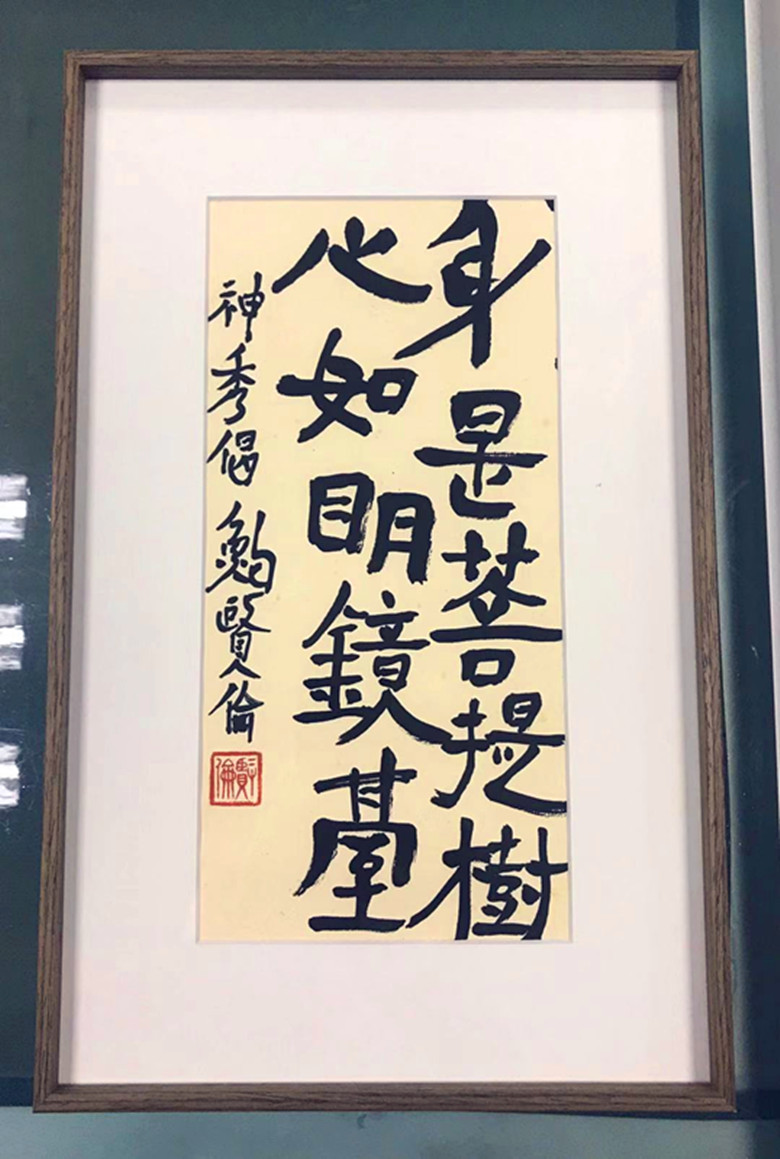 身是菩提樹
心如明鏡臺
神秀偈 鄭賢倫
賢倫